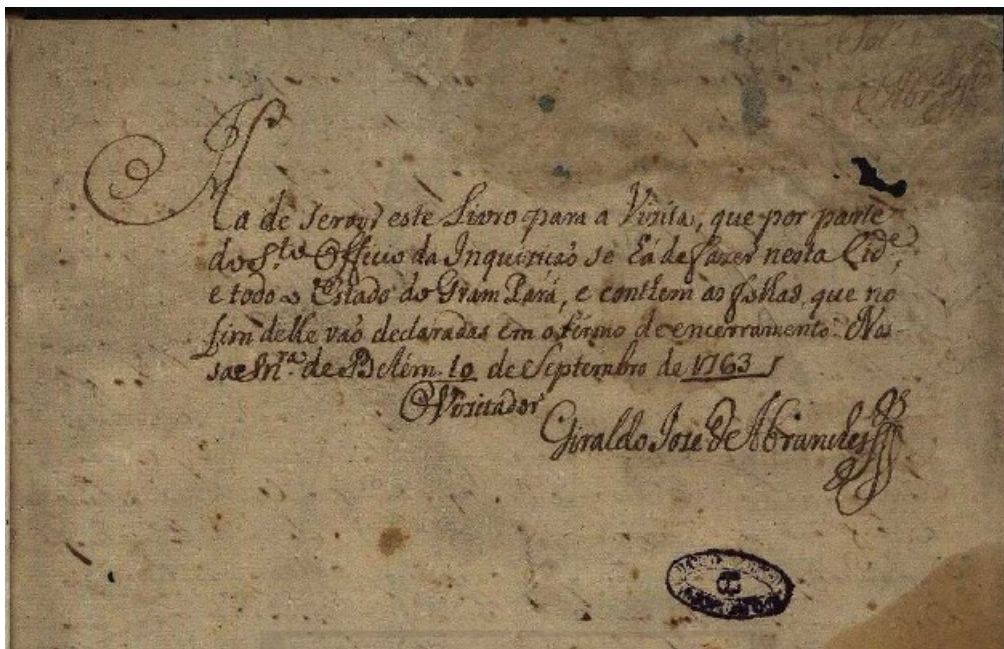 Fol. 1
Abr.es
Ha de servir este Livro para a Vizita, que por parte
do S.to Officio da Inquiziçaõ se há de fazer nesta Cid.e,
e todo o Estado do Gram Pará, e conthem as folhas, que no
fim delle vaõ declaradas em o termo de encerramento. Nos
sa Snr.ª de Belém 10 de Septembro de 1763
O Vizitador
Giraldo Joze de Abranches